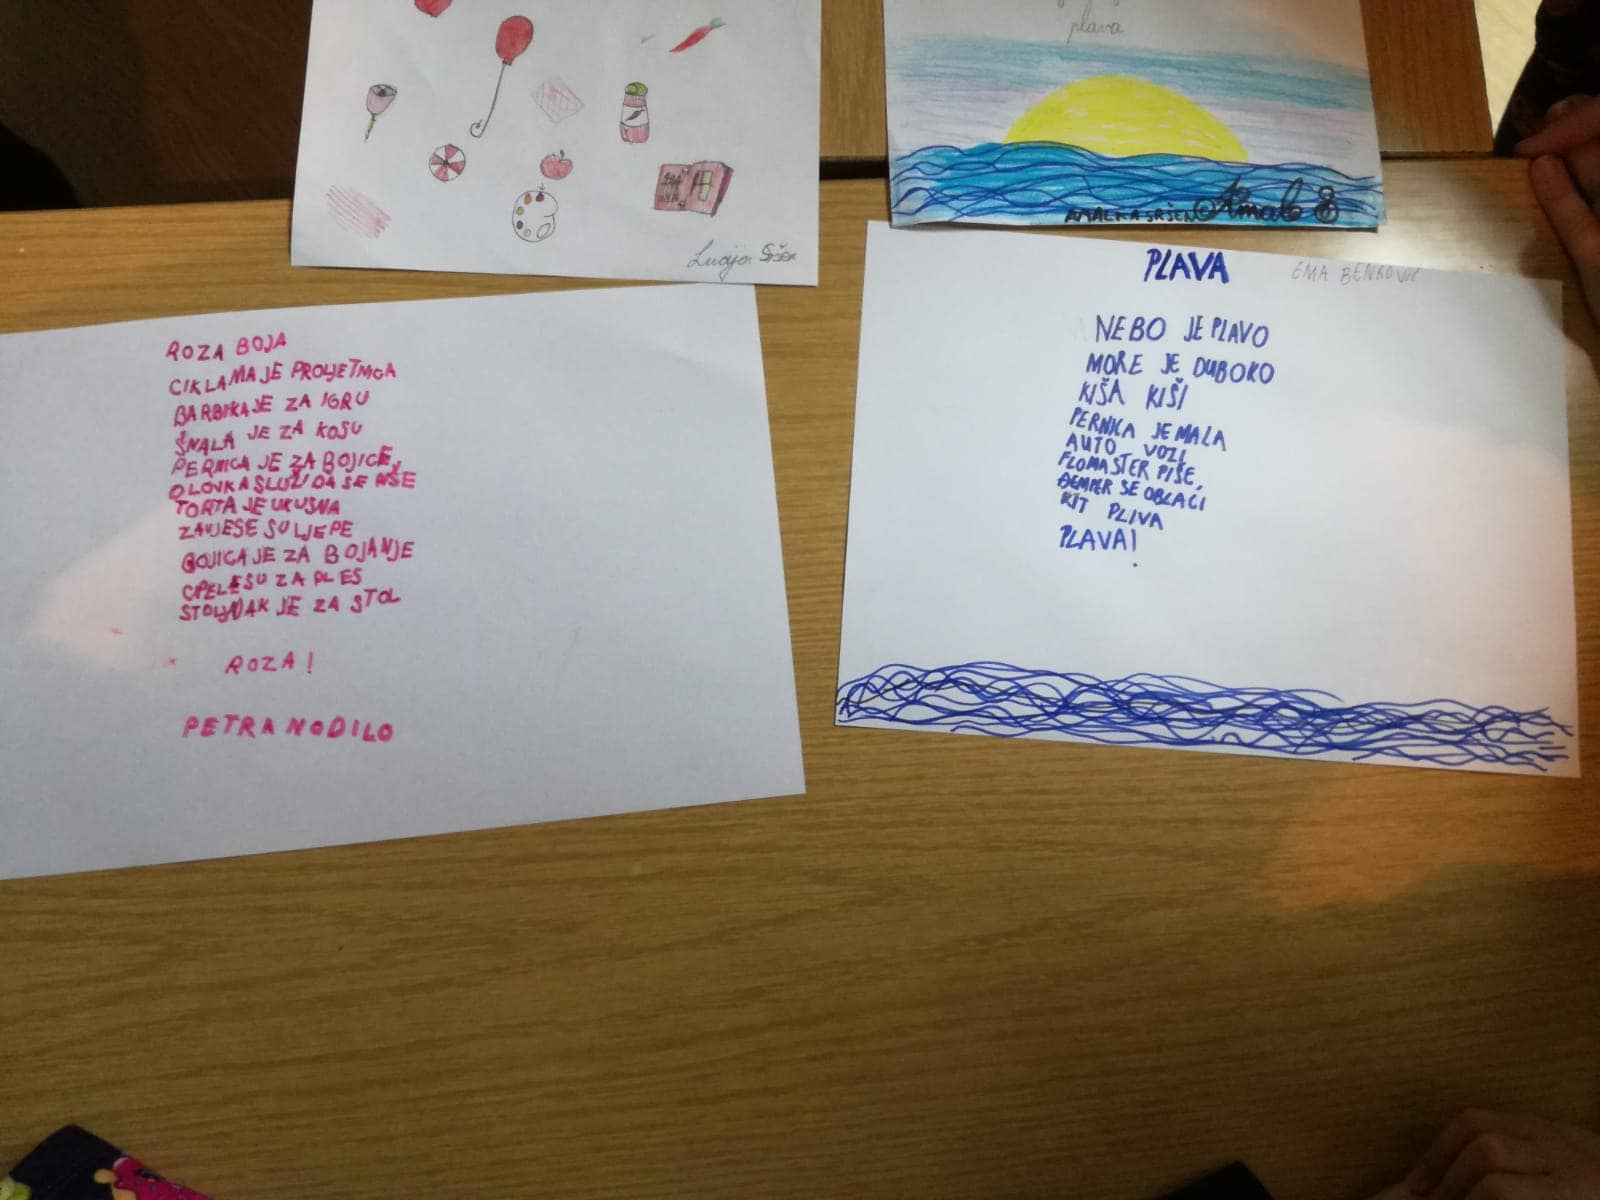 plava
AMALKA SRŠEN
Lucija Sršen
ROZA BOJA
CIKLAMA JE PROLJETNGA
BARBIKA JE ZA IGRU
ŠNALA JE ZA KOSU
PERNICA JE ZA BOJICE,
OLOVKA SLUŽI DA SE PIŠE
TORTA JE UKUSNA
ZAVJESE SU LJEPE
BOJICA JE ZA BOJANJE
CIPELE SU ZA PLES
STOLJNJAK JE ZA STOL
ROZA!
PETRA NODILO
PLAVA
EMA BENKOVIĆ
NEBO JE PLAVO
MORE JE DUBOKO
KIŠA KIŠI
PERNICA JE MALA
AUTO VOZI
FLOMASTER PIŠE,
ĐEMPER SE OBLAĆI
KIT PLIVA
PLAVA!